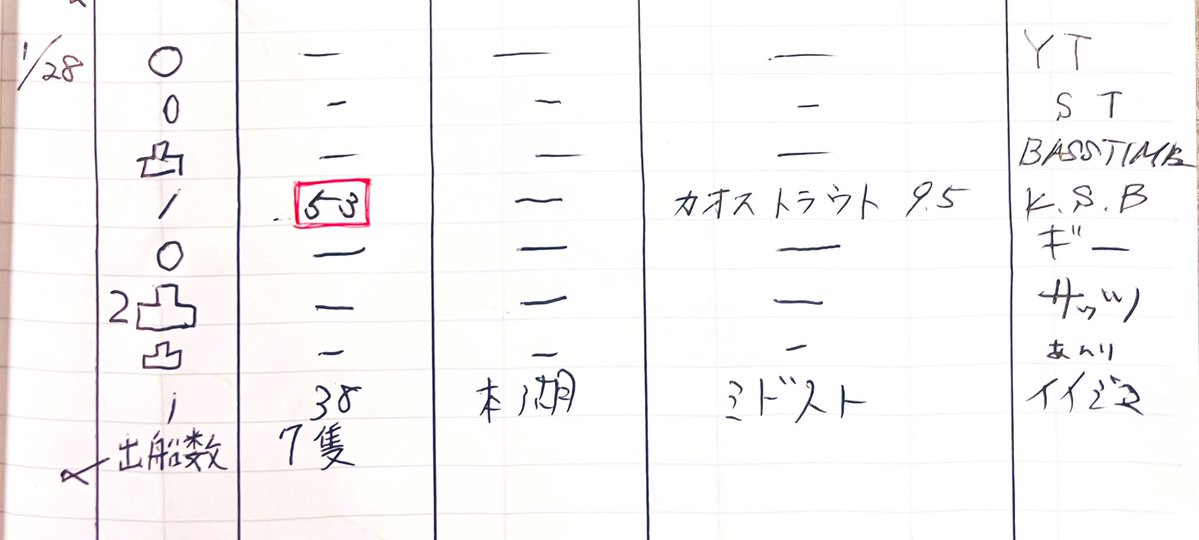 1/28 ○ — — — YT
0 — — — ST
凸 — — — BASSTIME
1 53 — カオストラウト 9.5 K.S.B
○ — — — ギー
2凸 — — — サッツ
凸 — — — あんり
1 38 本湖 ミドスト イイジマ
出船数 7隻